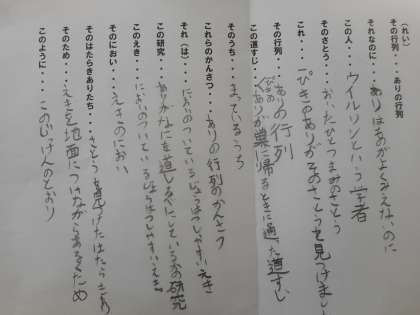 （れい）
その行列・・・ありの行列
それなのに・・・ありはものがよく見えないのに
この人・・・ウイルソンという学者
そのさとう・・・おいたひとつまみのさとう
これ・・・一ぴきのありがそのさとうを見つけました
その行列・・・ありの行列
この道すじ・・・ありが巣に帰るときに通った道すじ
そのうち・・・まっているうち
これらのかんさつ・・・ありの行列のかんさつ
それ（は）・・・においのついているじょうはつしやすいえき
この研究・・・ありがなにを道しるべにしているかの研究
このえき・・・においのついているじょうはつしやすいえき
そのにおい・・・えきのにおい
そのはたらきありたち・・・さとうを見つけたはたらきあり
そのため・・・えきを地面につけながらあるくため
このように・・・このじっけんのとおり